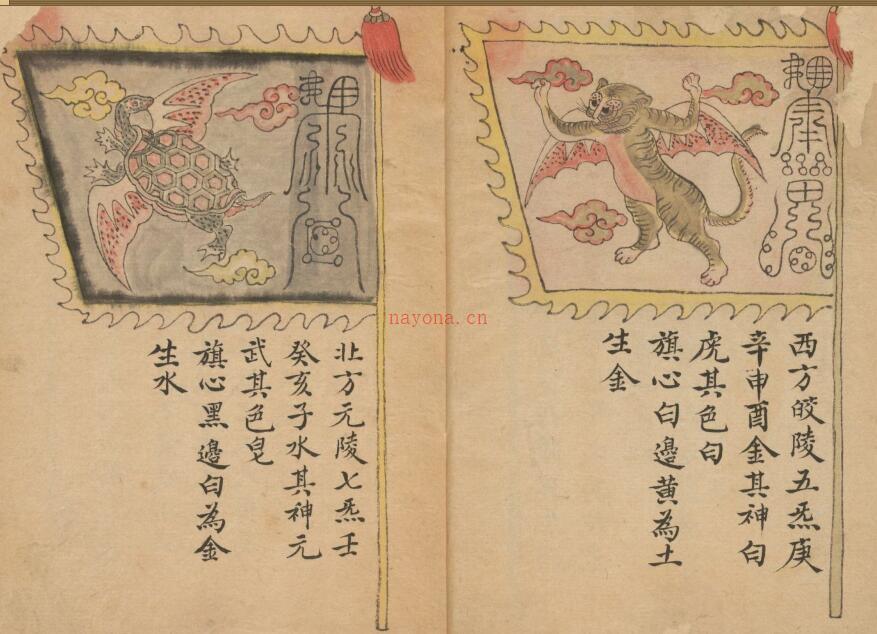 西方皎陵五炁庚
辛申酉金其神白
虎其色白
旗心白邊黄為土
生金
北方元陵七炁壬
癸亥子水其神元
武其色皂
旗心黑邊白為金
生水
nayona.cn